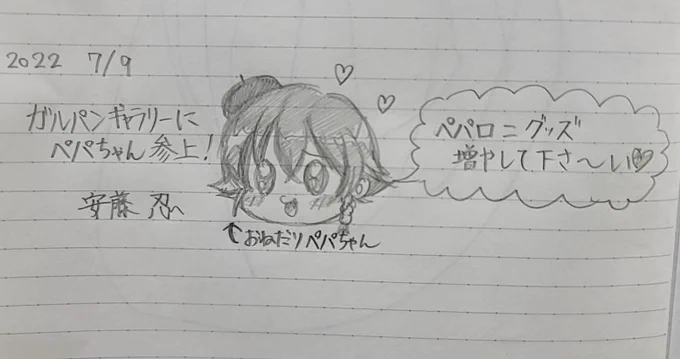 2022 7/9
ガルパンギャラリーに
ペパちゃん参上!
安藤 忍
ペパロニグッズ
増やして下さ〜い♡
↑おねだりペパちゃん